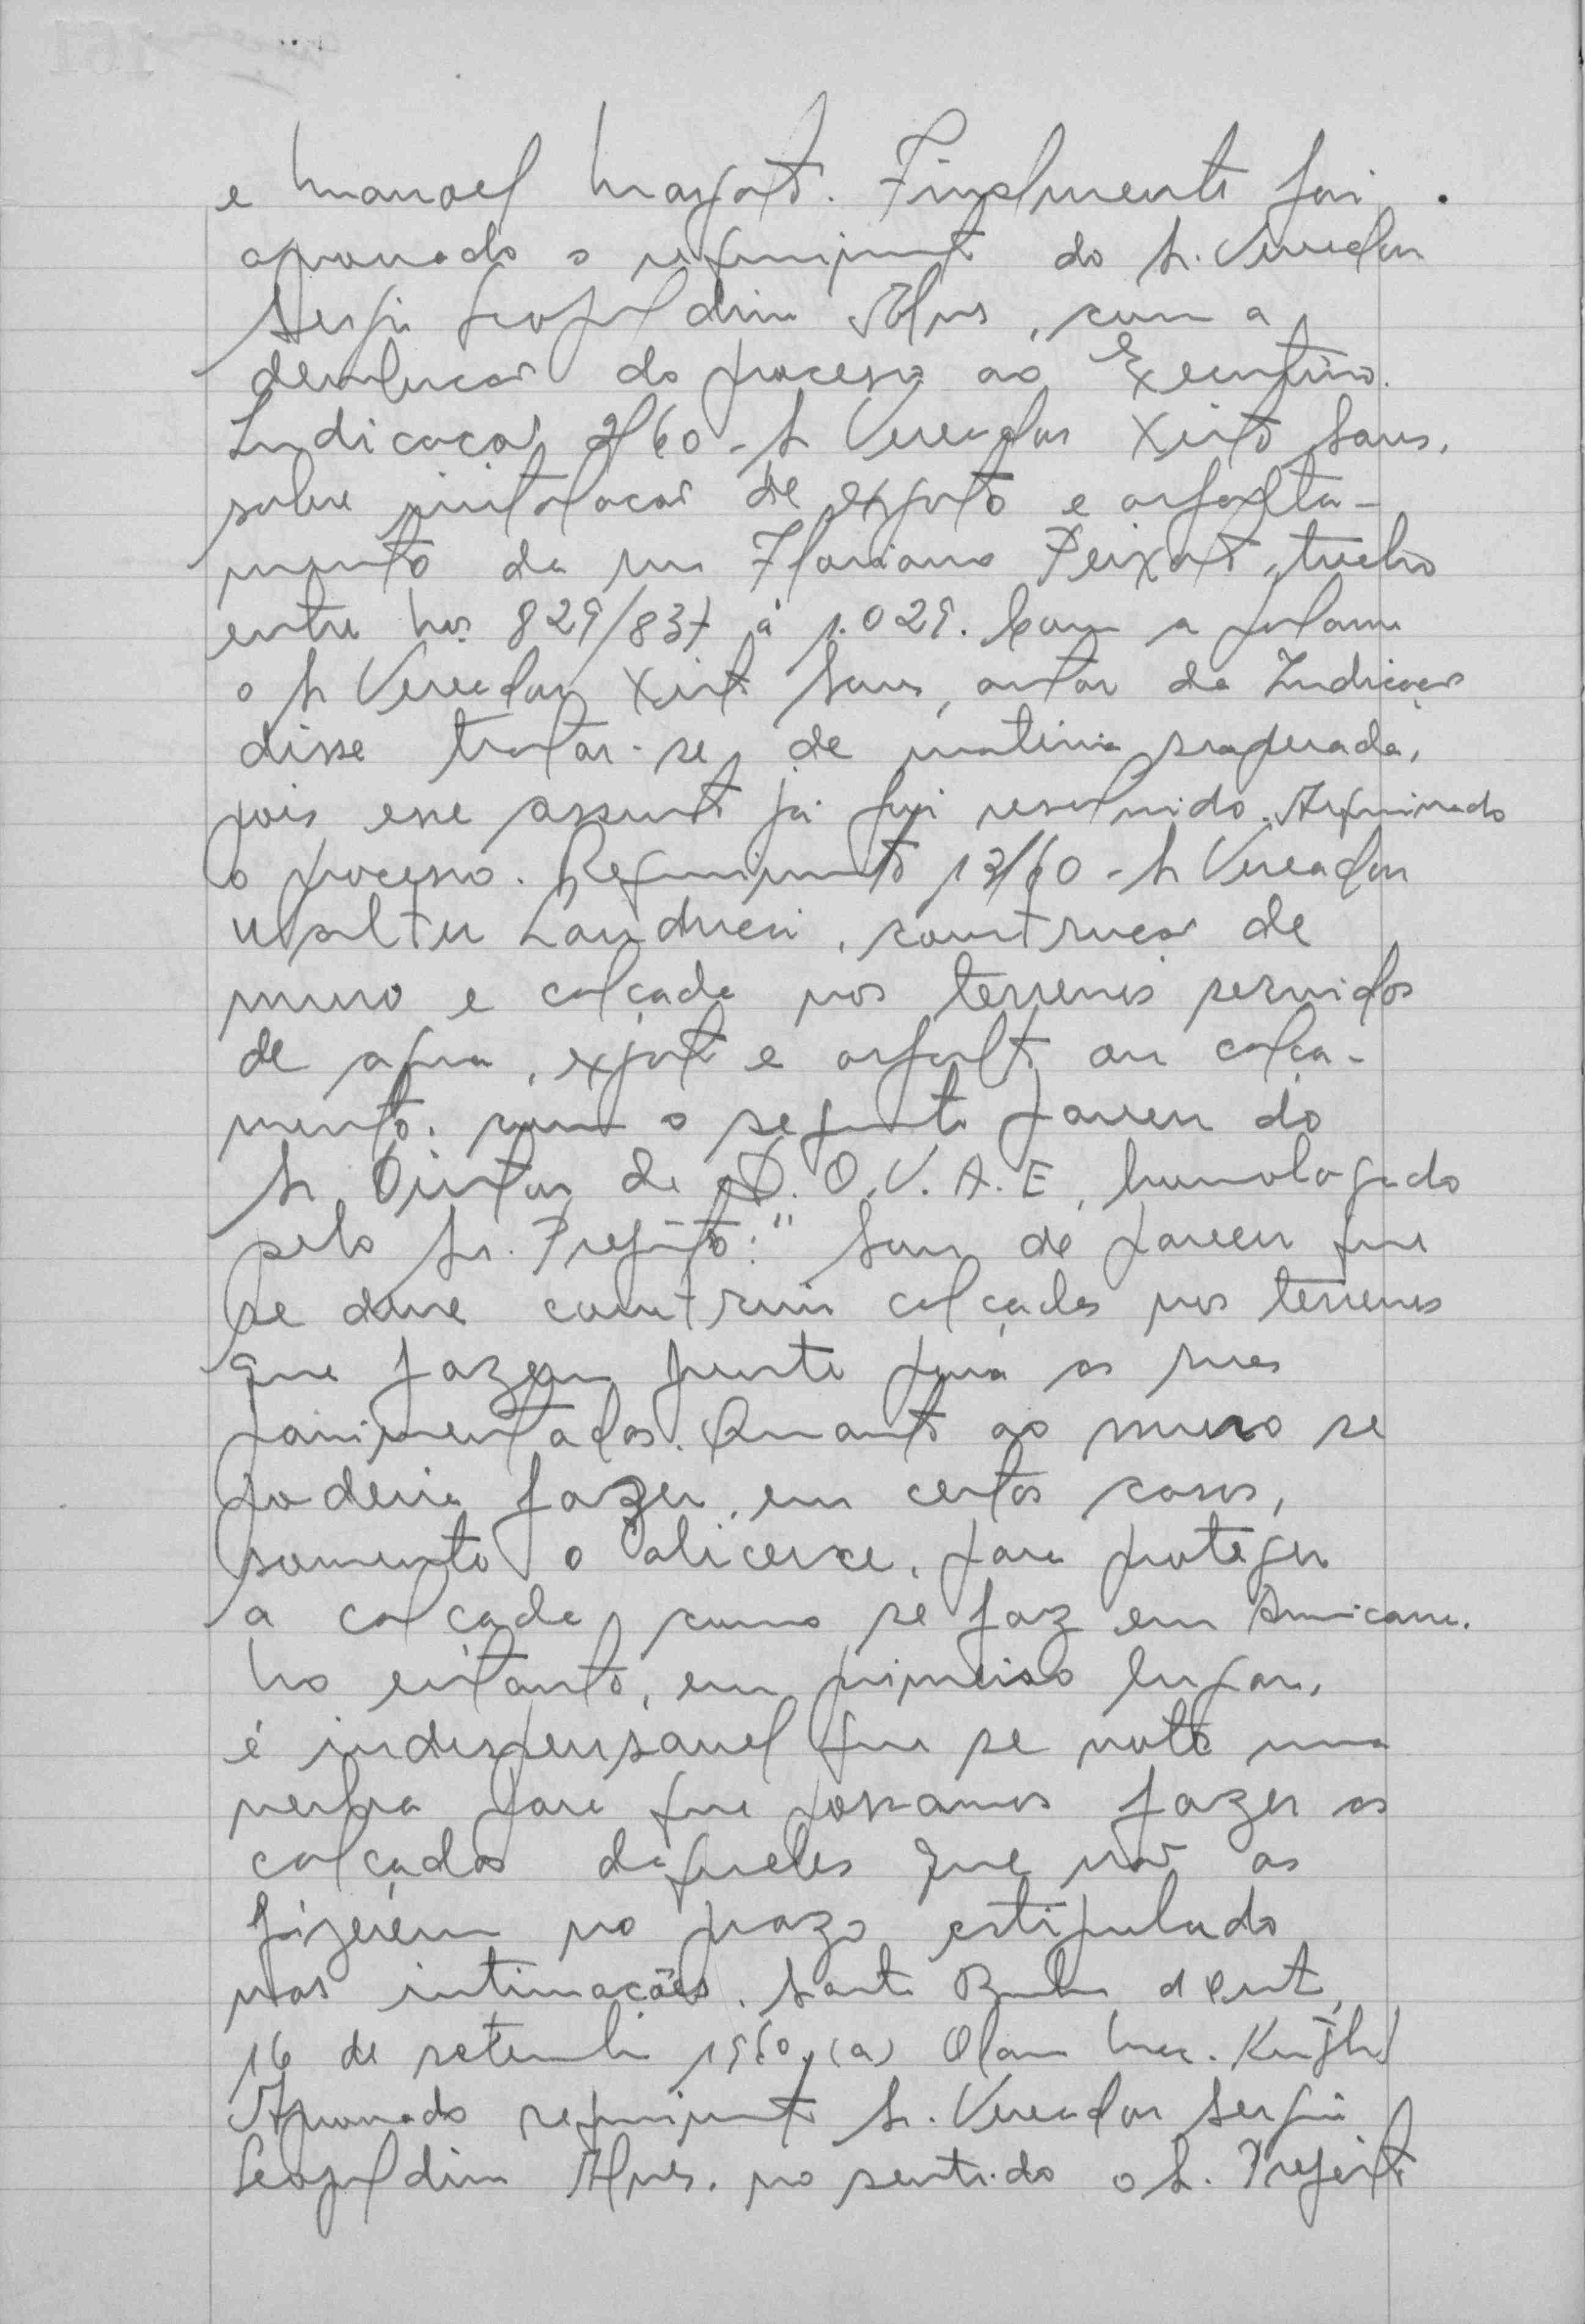 e Manoel Margato. Finalmente foi
aprovado o requerimento do Sr. Vereador
Sergio Leopoldino Alves, com a
devolução do processo ao Executivo.
Indicação 2/60 - Sr Vereador Xisto
sobre instalação de esgoto e asfalta-
mento da rua Floriano Peixoto, trecho
entre nos 829/837 à 1.029. Com a palavra
o Sr Vereador Xisto autor da Indicação
disse tratar-se de materia superada,
pois esse assunto já foi resolvido. Arquivado
o processo. Requerimento 13/60 - Sr Vereador
Walter Landucci, construção de
muro e calçada nos terrenos servidos
de agua, esgoto e asfalto ou calça-
mento. com o seguinte parecer do
Sr Diretor da D.O.V.A.E, homologado
pelo Sr. Prefeito: "Sou de parecer que
se deve construir calçadas nos terrenos
que fazem frente para as ruas
pavimentadas. Quanto ao muro se
poderia fazer, em certos casos,
somente o alicerce, para proteger
a calçada como se faz em Americana.
No entanto, em primeiro lugar,
é indispensavel que se vote uma
verba para que possamos fazer as
calçadas daqueles que não as
fizerem no prazo estipulado
nas intimações. Santa Barbara d'Oeste,
16 de setembro 1960. (a) Olavo Mac. Knight
Aprovado requerimento Sr. Vereador Sergio
Leopoldino Alves, no sentido o Sr. Prefeito